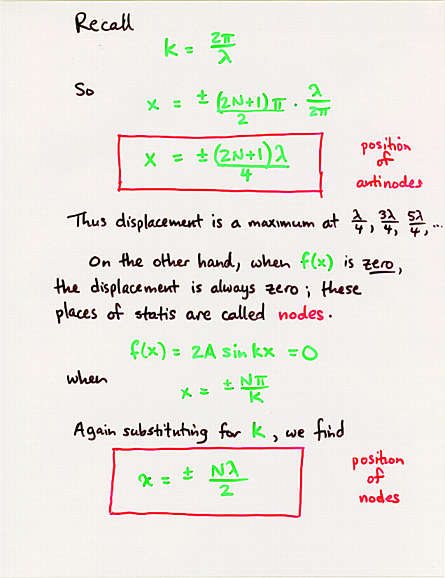 Recall
k = 2π/λ
So
x = ± (2N+1)π/2 · λ/2π
x = ± (2N+1)λ/4
position of antinodes
Thus displacement is a maximum at λ/4, 3λ/4, 5λ/4, ...
On the other hand, when f(x) is zero,
the displacement is always zero; these
places of statis are called nodes.
f(x) = 2A sin kx = 0
when
x = ± Nπ/k
Again substituting for k, we find
x = ± Nλ/2
position of nodes